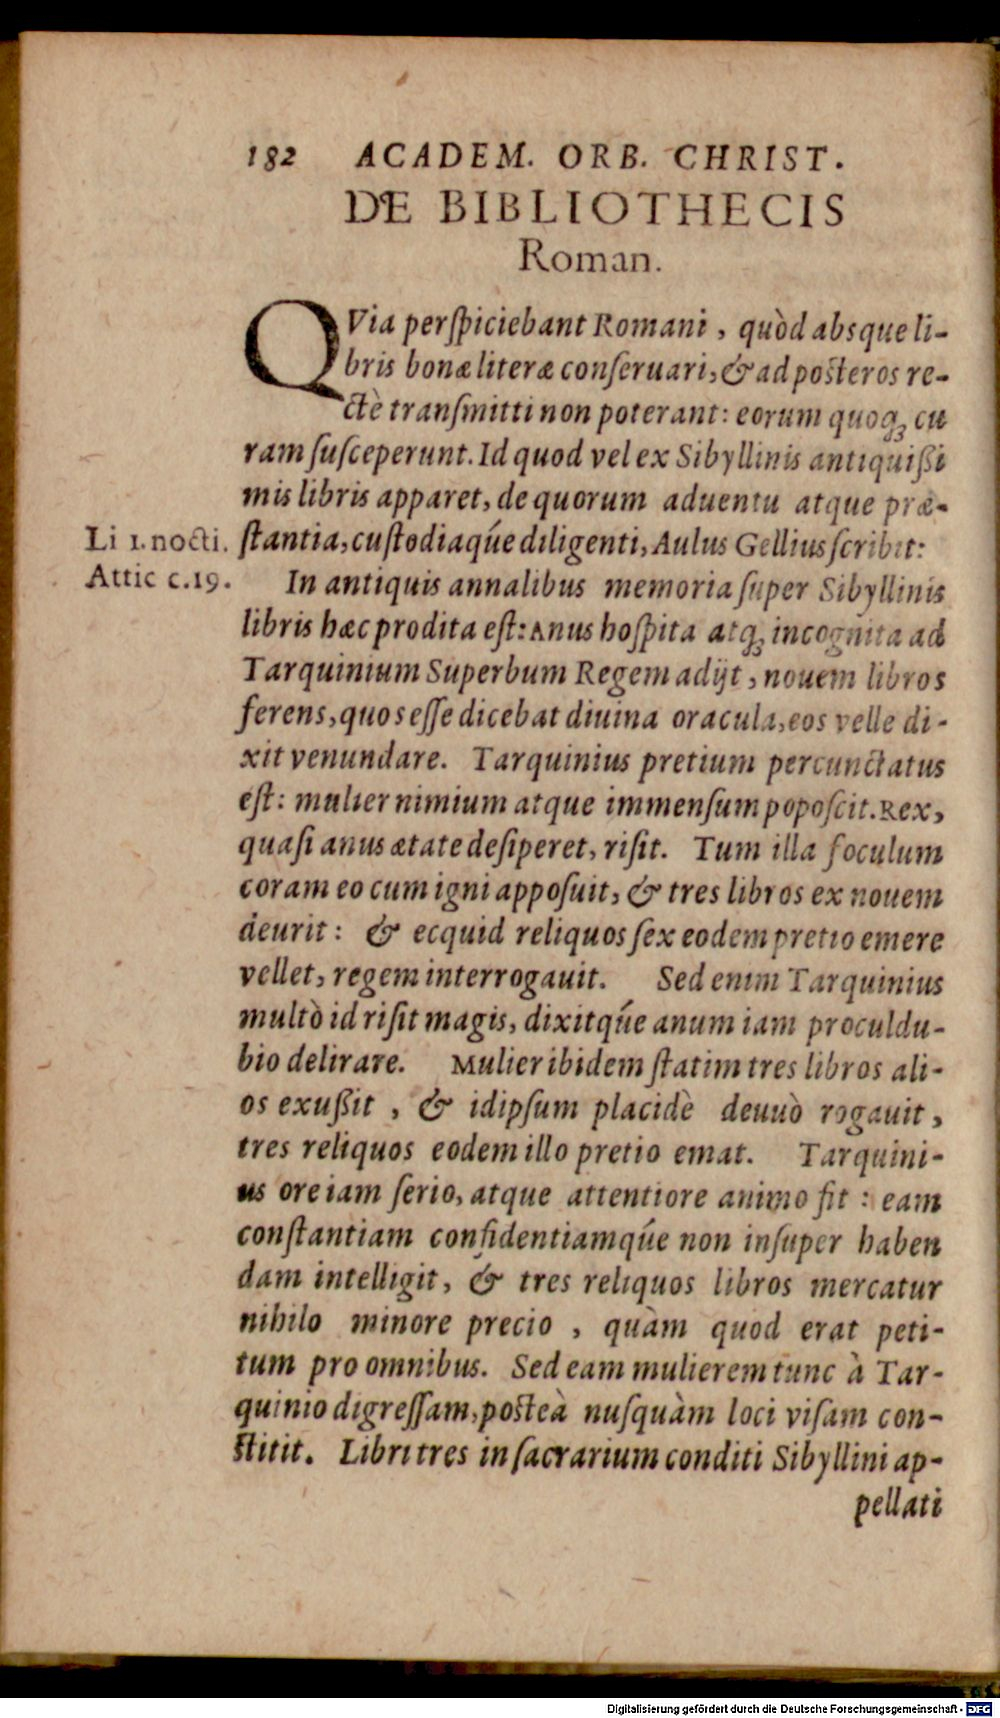 182 ACADEM. ORB. CHRIST.
DE BIBLIOTHECIS
Roman.
QVia perſpiciebant Romani, quòd absque li-
bris bonæ literæ conſeruari, & ad posteros re-
ctè tranſmitti non poterant: eorum quoq́ꝫ cu
ram ſuſceperunt. Id quod vel ex Sibyllinis antiquißi
mis libris apparet, de quorum aduentu atque præ-
ſtantia, cuſtodiaqúe diligenti, Aulus Gellius ſcribit:
Li 1. nocti.
Attic c.19.
In antiquis annalibus memoria ſuper Sibyllinis
libris hæc prodita eſt: Anus hoſpita atqꝫ incognita ad
Tarquinium Superbum Regem adijt, nouem libros
ferens, quos eſſe dicebat diuina oracula, eos velle di-
xit venundare. Tarquinius pretium percunctatus
eſt: mulier nimium atque immenſum popoſcit. Rex,
quaſi anus ætate deſiperet, riſit. Tum illa foculum
coram eo cum igni appoſuit, & tres libros ex nouem
deurit: & ecquid reliquos ſex eodem pretio emere
vellet, regem interrogauit. Sed enim Tarquinius
multò id riſit magis, dixitqúe anum iam proculdu-
bio delirare. Mulier ibidem ſtatim tres libros ali-
os exußit, & idipſum placidè deuuò rogauit,
tres reliquos eodem illo pretio emat. Tarquini-
us ore iam ſerio, atque attentiore animo fit: eam
conſtantiam confidentiamqúe non inſuper haben
dam intelligit, & tres reliquos libros mercatur
nihilo minore precio, quàm quod erat peti-
tum pro omnibus. Sed eam mulierem tunc à Tar-
quinio digreſſam, posteà nuſquàm loci viſam con-
ſtitit. Libri tres in ſacrarium conditi Sibyllini ap-
pellati
Digitalisierung gefördert durch die Deutsche Forschungsgemeinschaft - DFG